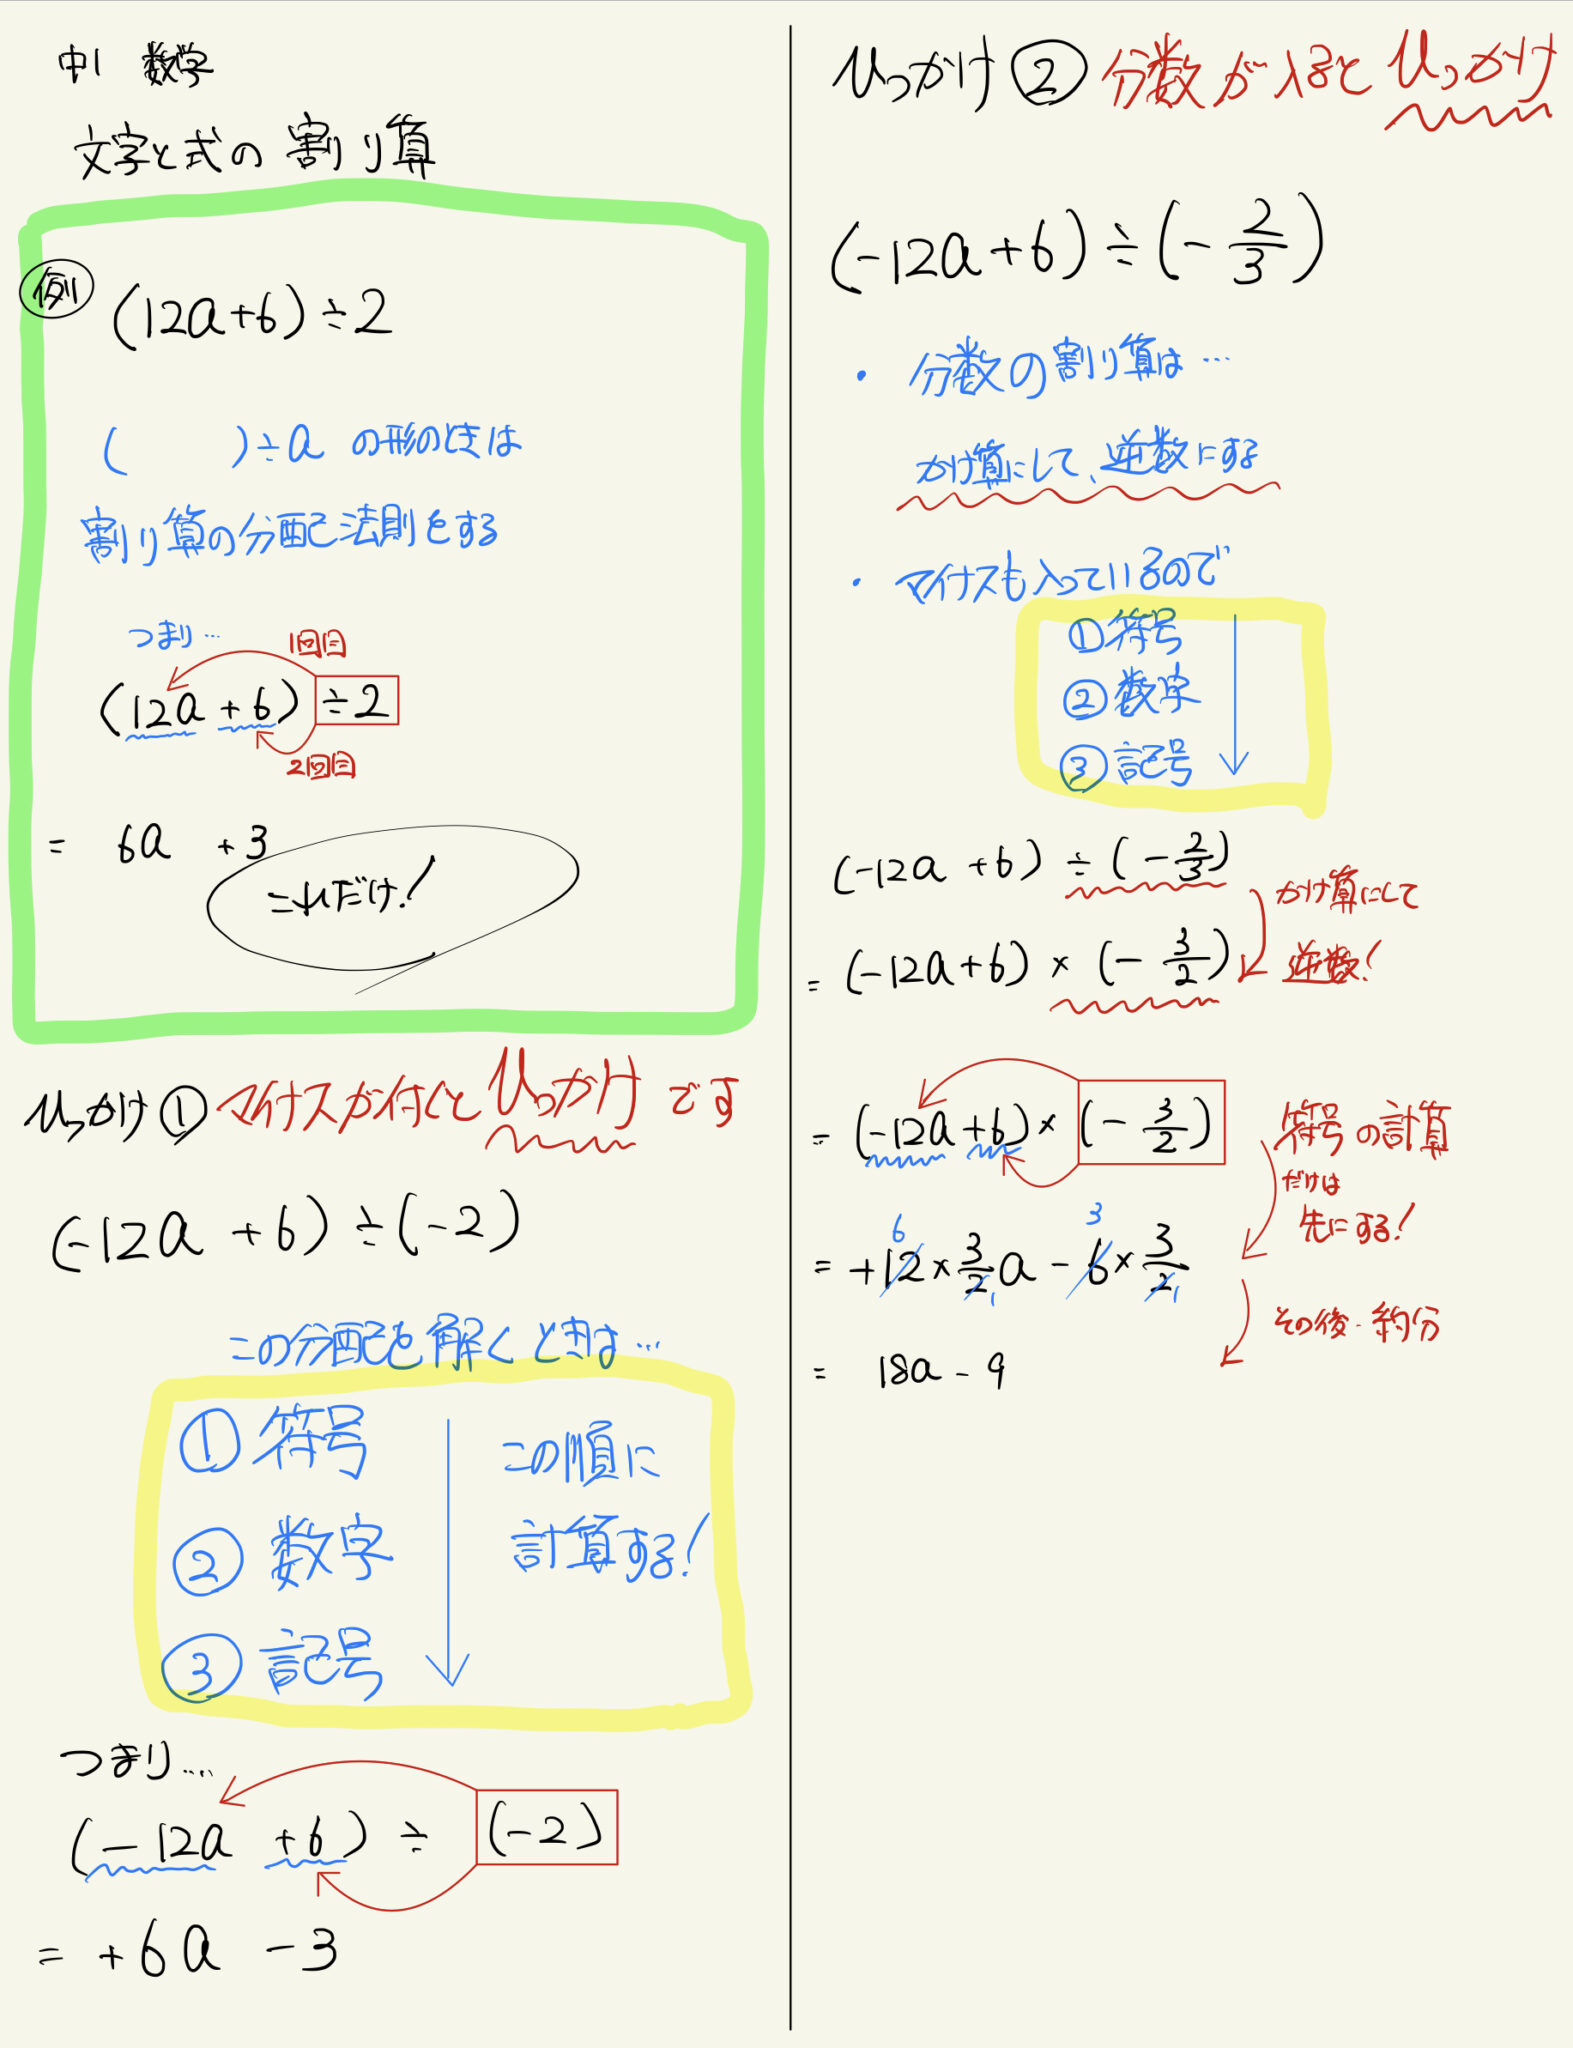 中1 数学
文字と式の割り算
例 (12a+6)÷2
( )÷a の形のときは
割り算の分配法則をする
つまり…
1回目
(12a +6) ÷2
2回目
= 6a +3
これだけ!
ひっかけ① マイナスが付くとひっかけです
(-12a +6)÷(-2)
この分配を解くときは…
① 符号
② 数字
③ 記号
この順に
計算する!
つまり….
(-12a +6) ÷ (-2)
= +6a -3
ひっかけ② 分数が入るとひっかけ
(-12a+6)÷(-2/3)
・ 分数の割り算は…
かけ算にして、逆数にする
・ マイナスも入っているので
①符号
②数字
③記号
(-12a +6) ÷ (-2/3)
かけ算にして
逆数!
= (-12a+6) × (-3/2)
= (-12a+6)× (-3/2)
符号の計算
だけは
先にする!
6 3
= +12×3/2a - 6×3/2
1 1
その後・約分
= 18a - 9